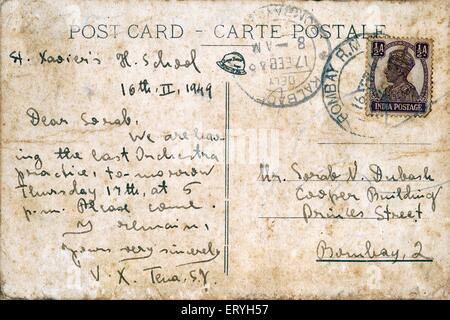 POST CARD - CARTE POSTALE
St. Xavier's H. School
16th, II, 1949
Dear Sorab,
We are hav
ing the last Orchestra
practice, to-morrow
Thursday 17th, at 5
p.m. Please come.
I remain,
yours very sincerely
V. X. S.J.
8 AM
KALBADEVI
BOMBAY R.M
½A ½A
INDIA POSTAGE
Mr. Sorab N. Dubash
Cooper Building
Princes Street
Bombay, 2
alamy
www.alamy.com - ERYH57